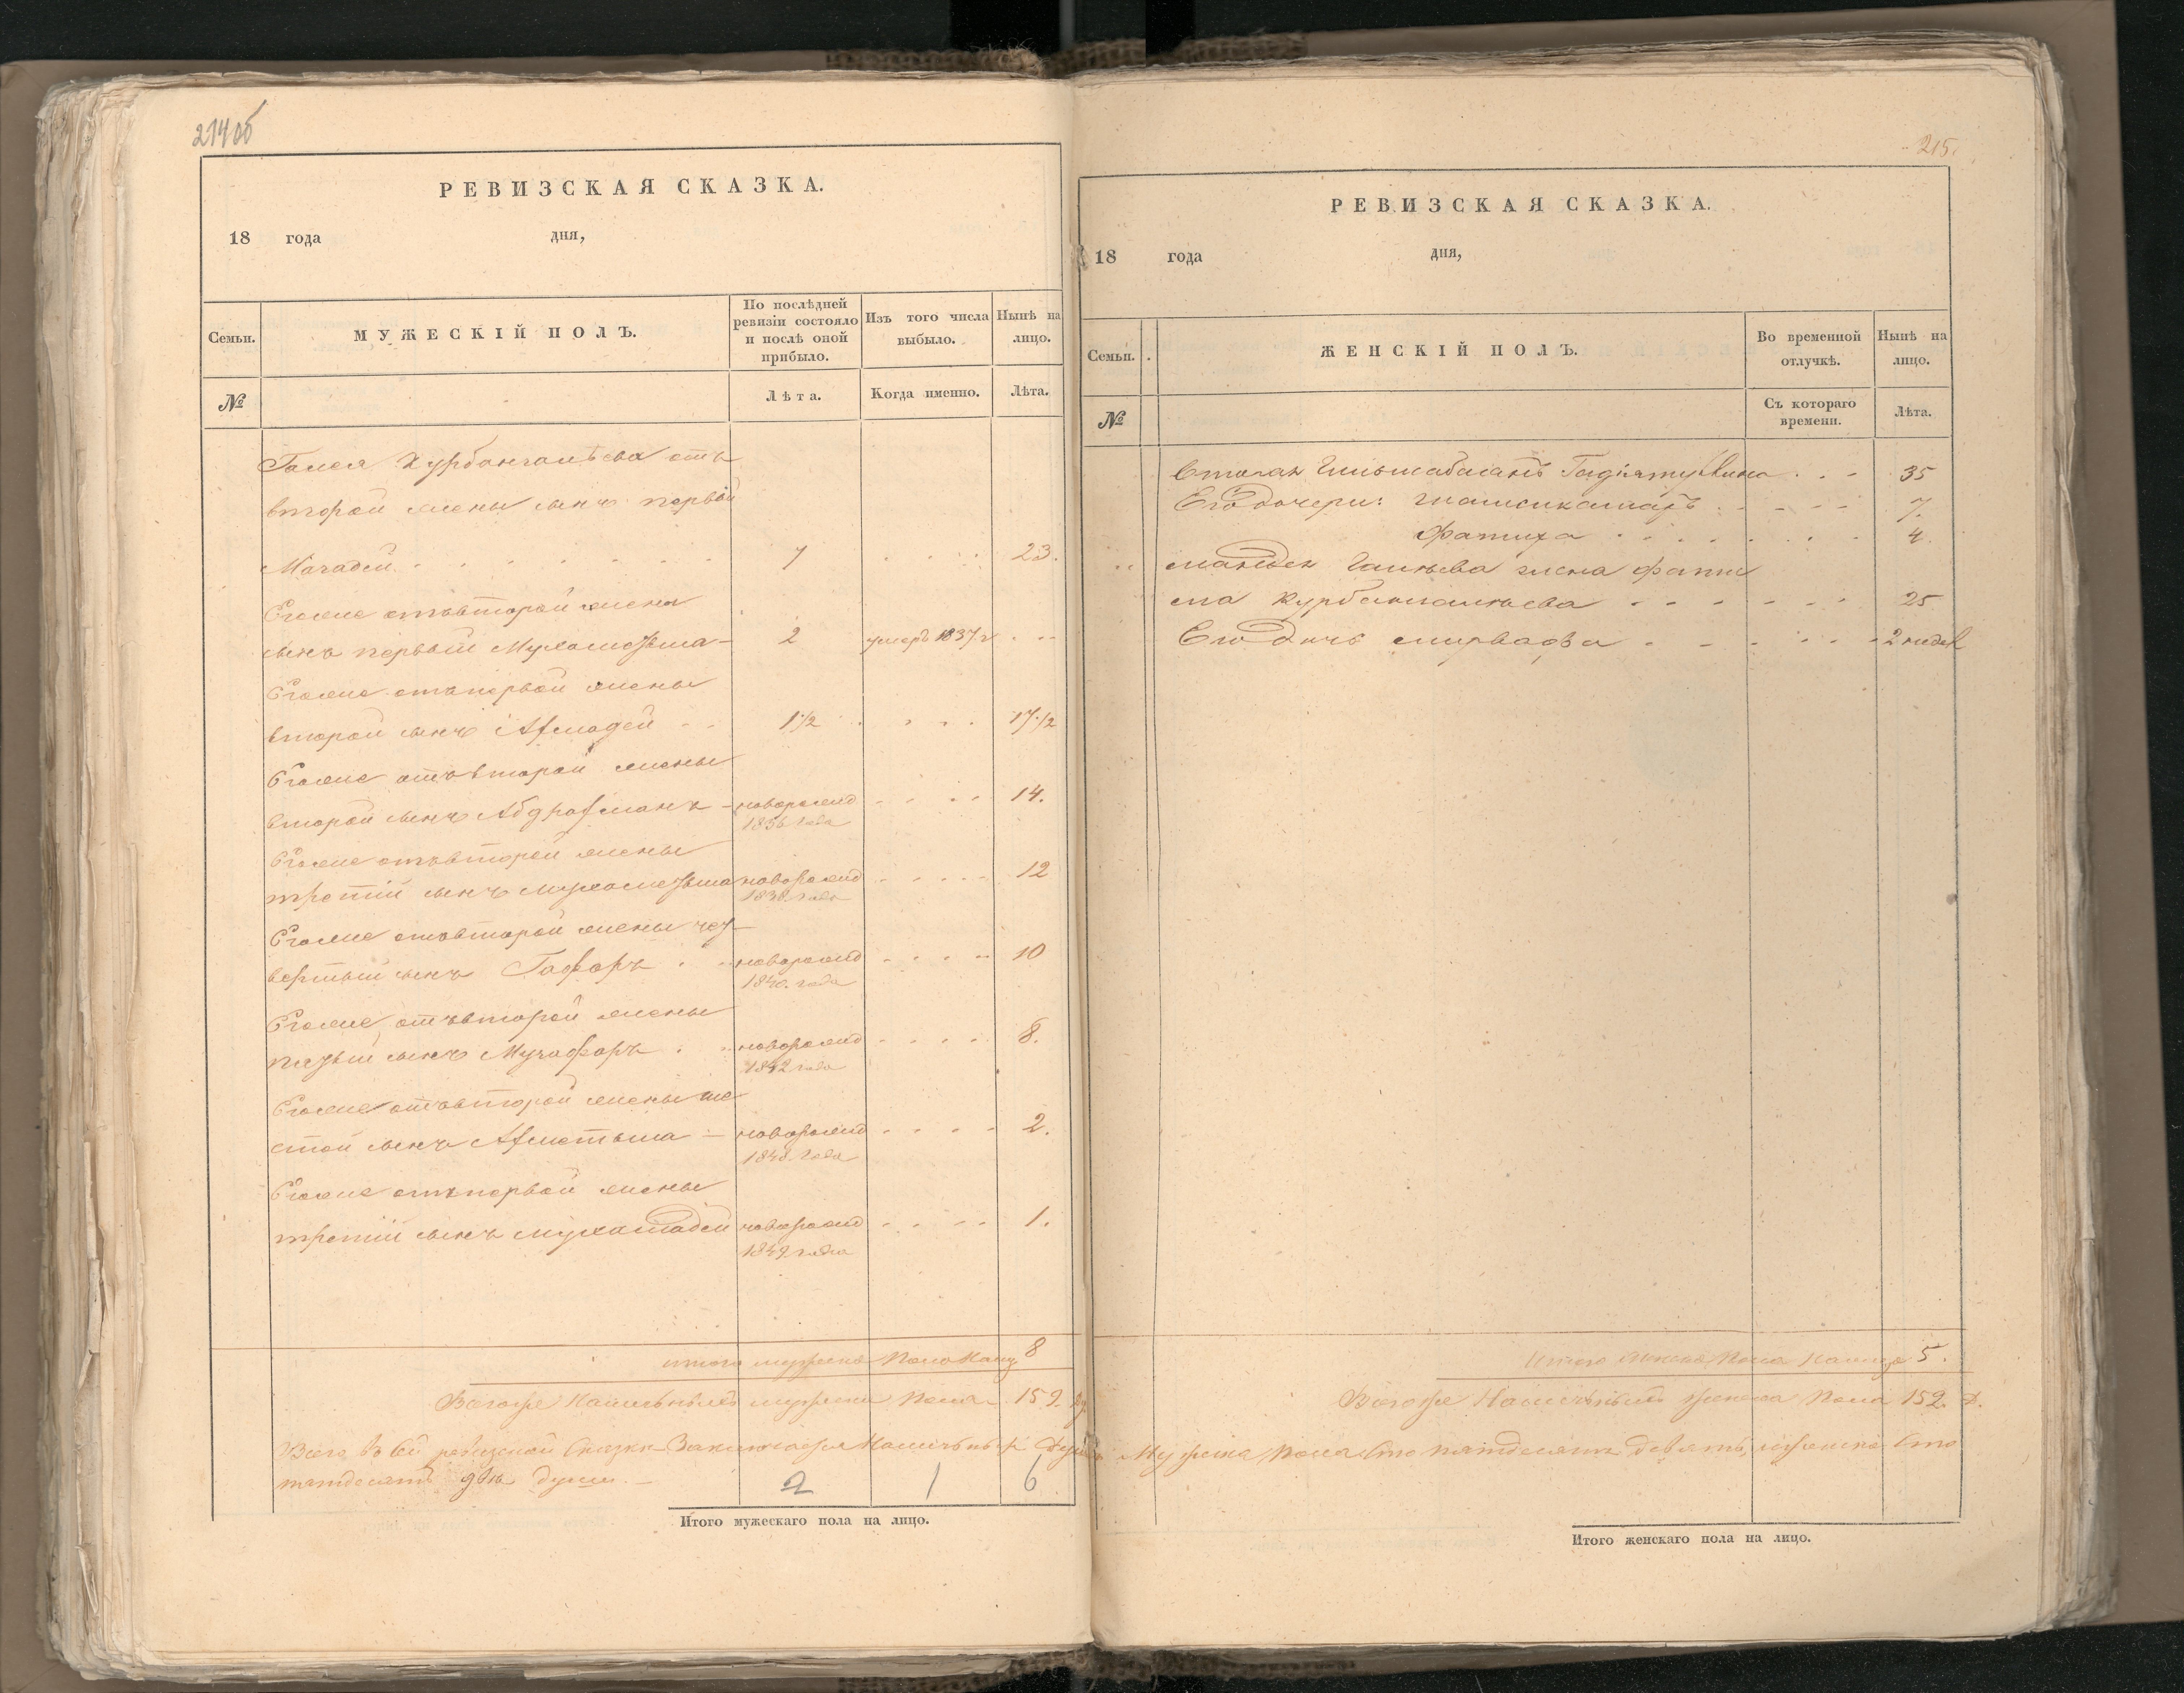 214об
РЕВИЗСКАЯ СКАЗКА.
18 года дня,
Семьи.
МУЖЕСКІЙ ПОЛЪ.
По послѣдней ревизіи состояло и послѣ оной прибыло.
Изъ того числа выбыло.
Нынѣ на лицо.
№
Лѣта.
Когда именно.
Лѣта.
Галея Курбангалѣева отъ
второй жены сынъ первый
Магадей 7 23.
Егоже отъ второй жены
сынъ первый 2 умеръ 1837 г
Егоже отъ первой жены
второй сынъ Ахмадей 1½ 17½
Егоже отъ второй жены
второй сынъ Абдрахманъ новорожд 14.
1836 года
Егоже отъ второй жены
третій сынъ новорожд 12
1838 года
Егоже отъ второй жены чет
вертый сынъ Гафаръ новорожд 10
1840. года
Егоже отъ второй жены
пятый сынъ новорожд 8.
1842 года
Егоже отъ второй жены ше
стой сынъ новорожд 2.
1848 года
Егоже отъ первой жены
третій сынъ Мухамадей новорожд 1.
1849 года
итого мужеска пола 8
мужеска пола 159.
Всего въ сей ревизской сказки
пятдесятъ двѣ души.
2 1 6
Итого мужескаго пола на лицо.
215.
РЕВИЗСКАЯ СКАЗКА.
18 года дня,
Семьи.
ЖЕНСКІЙ ПОЛЪ.
Во временной отлучкѣ.
Нынѣ на лицо.
№
Съ котораго времени.
Лѣта.
35
Его дочери: 7.
Фатиха 4.
жена Фати
ма Курбангалѣева 25
Его дочь 2 недел
Итого женска пола 5.
женска пола 152.
Мужеска пола сто пятдесятъ девять, женска сто
Итого женскаго пола на лицо.